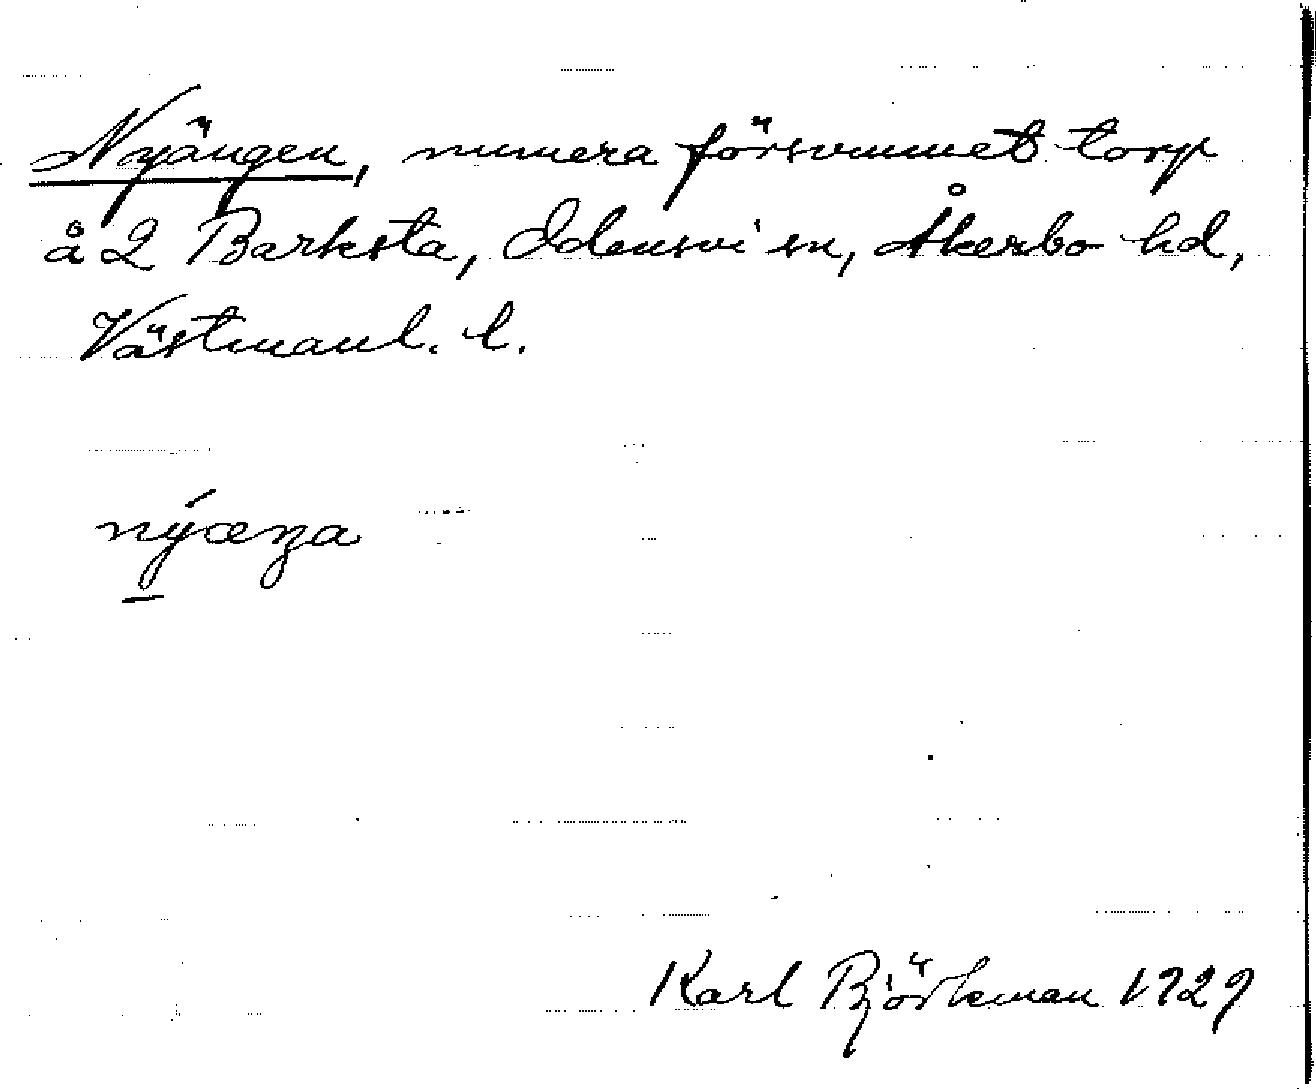 Nyängen, numera försvunnet torp
å 2 Barksta, Odensvi sn, Åkerbo hd,
Västmanl. l.
nýæŋa
Karl Björkman 1929